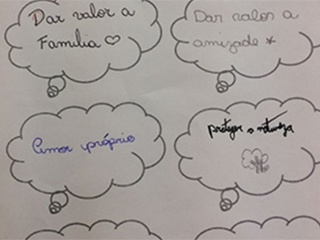 Dar valor a
Família ♡
Dar valor a
amizade *
Amor próprio
proteger a natureza